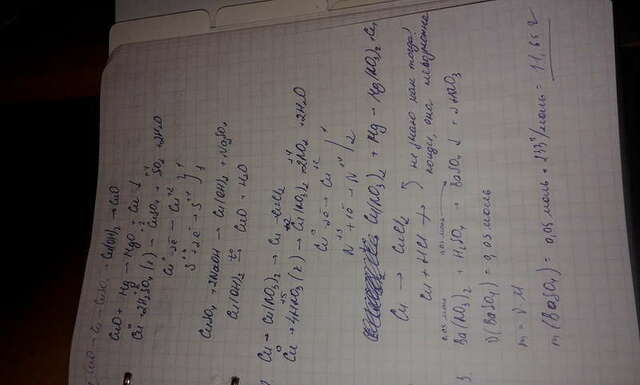 CuO → Cu → CuSO₄ → Cu(OH)₂ → CuO
CuO + Mg → MgO + Cu ↓
Cu + 2H₂SO₄ (к) → CuSO₄ + SO₂ + 2H₂O
Cu⁰ - 2ē → Cu⁺² | 1
S⁺⁶ + 2ē → S⁺⁴ | 1
CuSO₄ + 2NaOH → Cu(OH)₂ + Na₂SO₄
Cu(OH)₂ t° CuO + H₂O
Cu → Cu(NO₃)₂ → Cu → CuCl₂
Cu + 4HNO₃ (к) → Cu(NO₃)₂ + 2NO₂ + 2H₂O
Cu⁰ - 2ē → Cu⁺² | 1
N⁺⁵ + 1ē → N⁺⁴ | 2
Cu(NO₃)₂ + Mg → Mg(NO₃)₂ + Cu
Cu → CuCl₂
Cu + HCl → не знаю как тогда!
она невозможна
3. Ba(NO₃)₂ + H₂SO₄ → BaSO₄ ↓ + 2HNO₃
ν(BaSO₄) = 0,05 моль
m = ν · M
m (BaSO₄) = 0,05 моль · 233 г/моль = 11,65 г